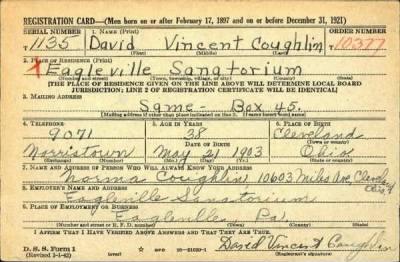 REGISTRATION CARD—(Men born on or after February 17, 1897 and on or before December 31, 1921)
SERIAL NUMBER 1. NAME (Print) ORDER NUMBER
1135 David Vincent Coughlin 10377
(First) (Middle) (Last)
2. PLACE OF RESIDENCE (Print)
Eagleville Sanatorium
(Number and street) (Town, township, village, or city) (County) (State)
[THE PLACE OF RESIDENCE GIVEN ON THE LINE ABOVE WILL DETERMINE LOCAL BOARD
JURISDICTION; LINE 2 OF REGISTRATION CERTIFICATE WILL BE IDENTICAL]
3. MAILING ADDRESS
Same - Box 45.
[Mailing address if other than place indicated on line 2. If same insert word same]
4. TELEPHONE 5. AGE IN YEARS 6. PLACE OF BIRTH
9071 38 Cleveland
DATE OF BIRTH (Town or county)
Norristown May 21 1903 Ohio
(Exchange) (Number) (Mo.) (Day) (Yr.) (State or country)
7. NAME AND ADDRESS OF PERSON WHO WILL ALWAYS KNOW YOUR ADDRESS
Norma Coughlin 10603 Miles Ave, Cleve
Ohio
8. EMPLOYER'S NAME AND ADDRESS
Eagleville Sanatorium
9. PLACE OF EMPLOYMENT OR BUSINESS
Eagleville Pa.
(Number and street or R. F. D. number) (Town) (County) (State)
I AFFIRM THAT I HAVE VERIFIED ABOVE ANSWERS AND THAT THEY ARE TRUE.
D. S. S. Form 1
(Revised 1-1-42) (over)
David Vincent Coughlin
(Registrant's signature)